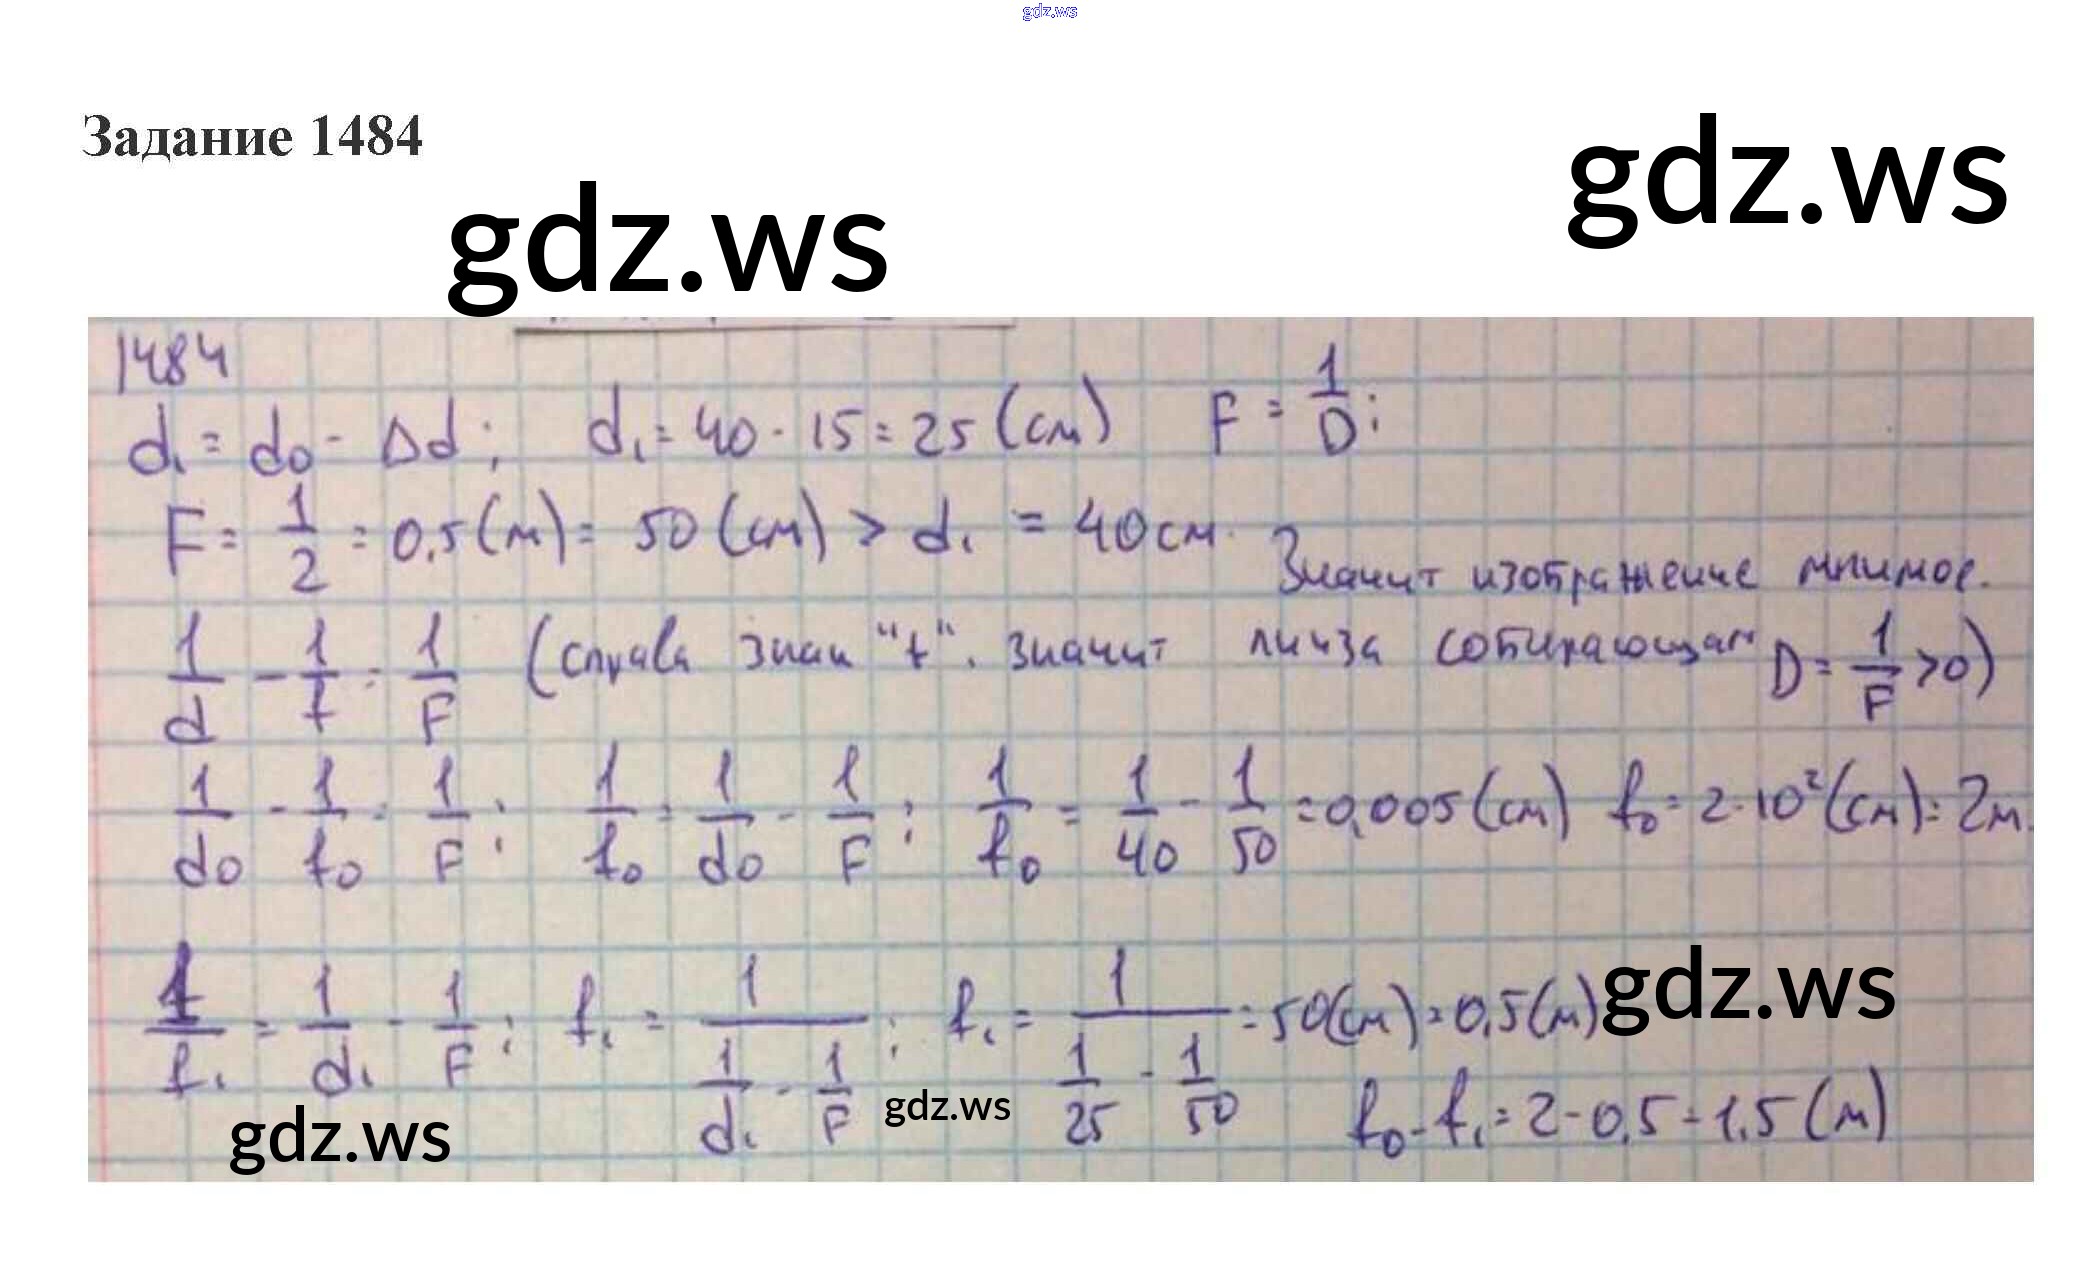 gdz.ws
Задание 1484
gdz.ws
gdz.ws
1484
d₁ = d₀ - Δd; d₁ = 40 - 15 = 25 (см) F = 1/D;
F = 1/2 = 0,5 (м) = 50 (см) > d₁ = 40 см. Значит изображение мнимое.
1/d - 1/f = 1/F (справа знак "+". значит линза собирающая D = 1/F > 0)
1/d₀ - 1/f₀ = 1/F; 1/f₀ = 1/d₀ - 1/F; 1/f₀ = 1/40 - 1/50 = 0,005 (см) f₀ = 2·10² (см) = 2м.
1/f₁ = 1/d₁ - 1/F; f₁ = 1/(1/d₁ - 1/F); f₁ = 1/(1/25 - 1/50) = 50(см) = 0,5(м)
gdz.ws
f₀ - f₁ = 2 - 0,5 = 1,5 (м)
gdz.ws
gdz.ws